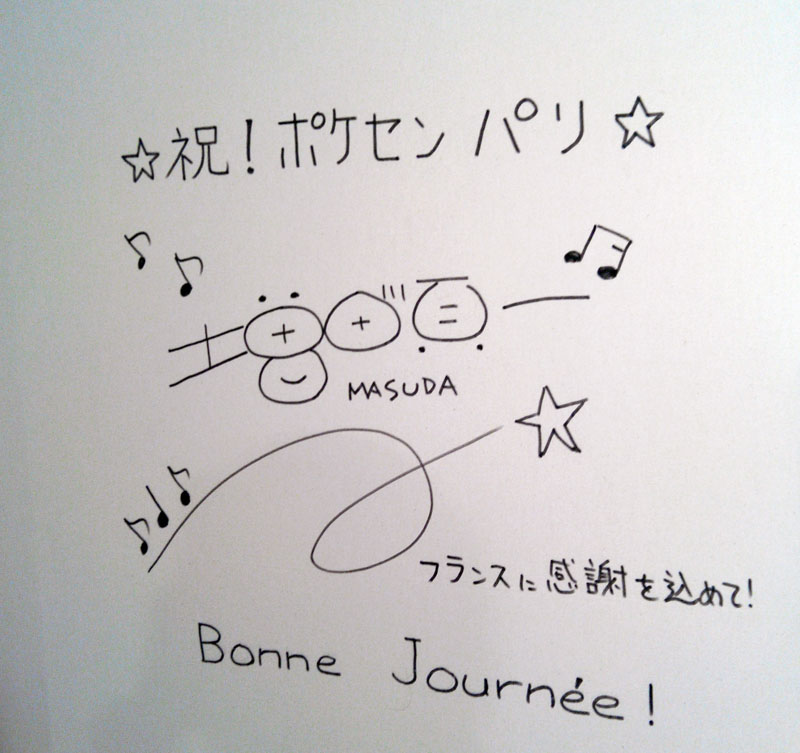 ☆祝！ポケセンパリ☆
MASUDA
フランスに感謝を込めて！
Bonne Journée !